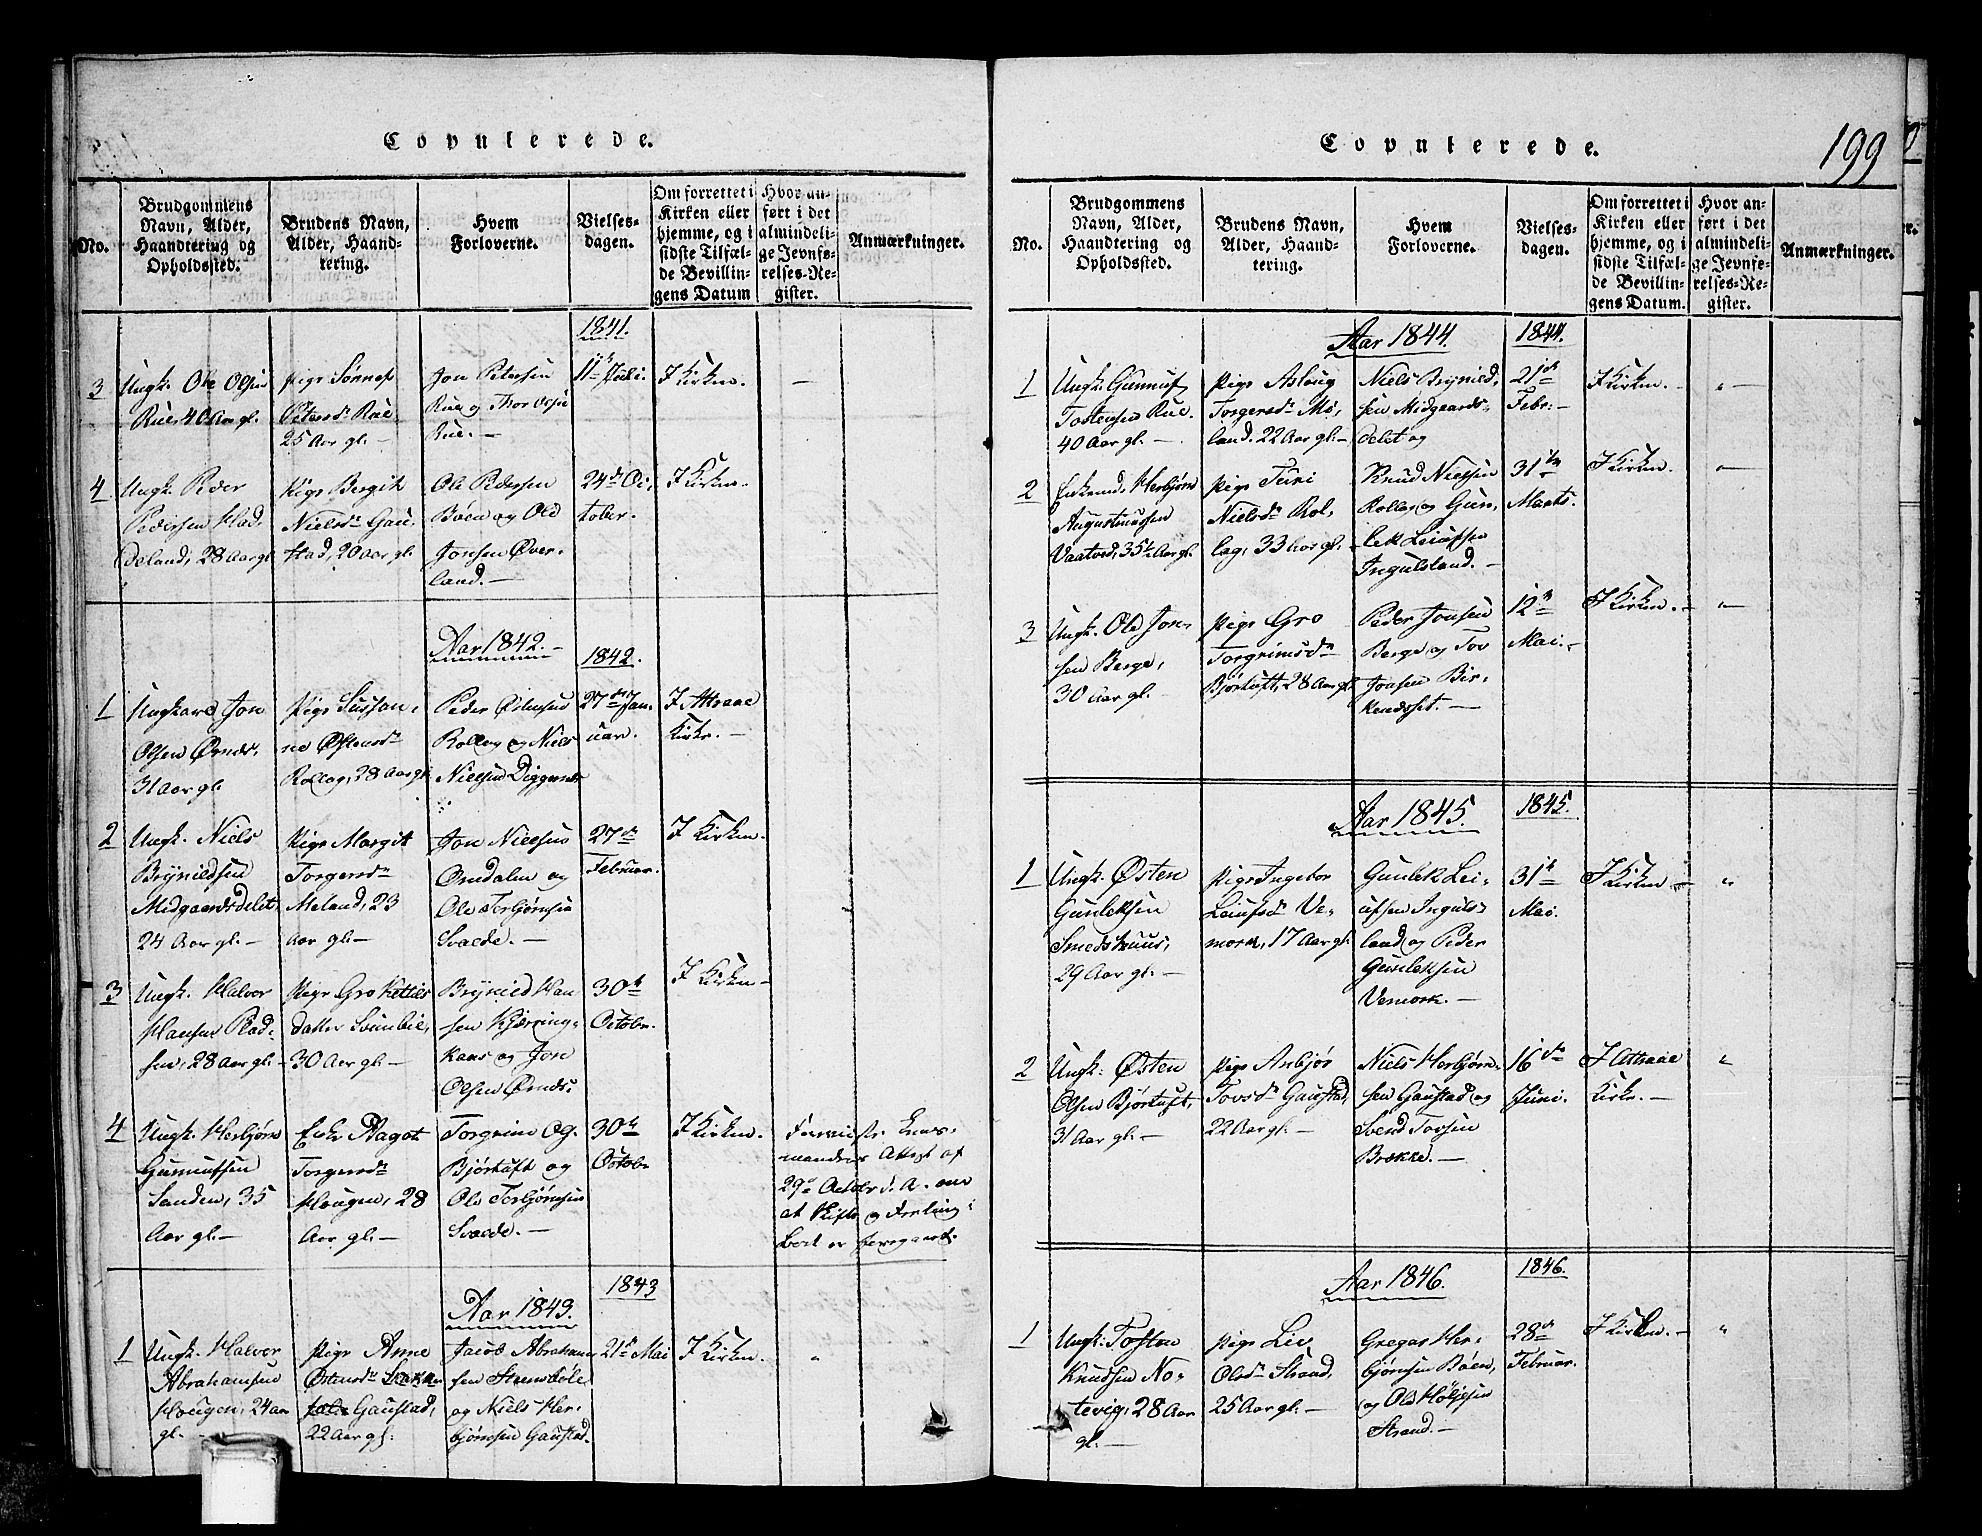 Copulerede.
No.
Brudgommens
Navn, Alder,
Haandtering og
Opholdssted.
Brudens Navn,
Alder, Haand-
tering.
Hvem
Forloverne.
Vielses-
dagen.
Om forrettet i
Kirken eller
hjemme, og i
sidste Tilfæl-
de Bevillin-
gens Datum
Hvor an-
ført i det
almindeli-
ge Jevnfø-
relses-Re-
gister.
Anmærkninger.
1841.
3
Ungk. Ole Olsen
Rue, 40 Aar gl.
Pige Sønnep
Petersdr Rue,
25 Aar gl. —
Jon Petersen
Rue og Thor Olsen
Rue. —
11te Juli.
I Kirken.
—
4
Ungk. Peder
Pedersen Had-
deland, 28 Aar gl
Pige Bergit
Nielsdr Gau-
stad, 20 Aar gl.
Ole Pedersen
Bøen og Ole
Jonsen Øver-
land. —
24de Oc-
tober.
I Kirken.
Aar 1842. —
1842.
1
Ungkarl Jon
Olsen Ørnes,
31 Aar gl.
Pige Sussan-
ne Østensdr
Rollag, 28 Aar gl.
Peder Østensen
Rollag og Niels
Nielsen
27de Jan-
uar.
I Attraae
Kirke. —
2
Ungk. Niels
Brynildsen
Midgaardsdelet,
24 Aar gl. —
Pige Margit
Torgersdr
Meland, 23
Aar gl. —
Jon Nielsen
Ørndalen og
Ole Torbjørnsen
Svadde. —
27de
Februar.
I Kirken.
3
Ungk. Halvor
Hansen
28 Aar gl. —
Pige Gro Kittils
datter
30 Aar gl. —
Brynild Han
sen Kjærring-
kaas og Jon
Olsen Ørnes.
30te
Octobr.
I Kirken.
4
Ungk. Herbjørn
Gunnufsen
Sanden, 35
Aar gl. —
Enke Aagot
Torgersdr
Hougen, 28
Aar gl. —
Torgrim Ols.
Bjørtuft og
Ole Torbjørnsen
Svadde. —
30te
Octobr
I Kirken.
Attest af
29de Octobr d. A. om
at Skifte og
er foregaaet.
1843
Aar 1843.
1
Ungk. Halvor
Abrahamsen
Hougen, 24 Aar
gl. —
Pige Anne
Østensdr
Gaustad,
22 Aar gl.
Jacob Abraham
sen Steensbøle
og Niels Her-
bjørnsen Gaustad.
21de Mai
I Kirken.
"
Copulerede.
199
No.
Brudgommens
Navn, Alder,
Haandtering og
Opholdssted.
Brudens Navn,
Alder, Haand-
tering.
Hvem
Forloverne.
Vielses-
dagen.
Om forrettet i
Kirken eller
hjemme, og i
sidste Tilfæl-
de Bevillin-
gens Datum.
Hvor an-
ført i det
almindeli-
ge Jevnfø-
relses-Re-
gister.
Anmærkninger.
Aar 1844.
1844.
1
Ungk. Gunnuf
Tostensen Rue.
40 Aar gl. —
Pige Aslaug
Torgersdr Mø-
land. 22 Aar gl. —
Niels Brynild-
sen Midgaards-
delet og
21de
Febr. —
I Kirken. —
" —
2
Enkemd. Herbjørn
Augustinussen
Vaatved, 35½ Aar gl.
Pige Turi
Nielsdr Rol-
lag, 33 Aar gl.
Knud Nielsen
Rollag og Gun-
lek Leiufsen
Ingulsland. —
31te
Marts.
I Kirken.
" —
3
Ungk. Ole Jon-
sen Berge,
30 Aar gl. —
Pige Gro
Torgrimsdr
Bjørtuft, 28 Aar gl.
Peder Jonsen
Berge og Tov
Jonsen Bir-
kendsset. —
12te
Mai. —
I Kirken. —
" —
Aar 1845.
1845.
1
Ungk. Østen
Gunleksen
Smedshuus,
29 Aar gl. —
Pige Ingebor
Leiufsdr Ve-
mork, 17 Aar gl.
Gunlek Lei-
ufsen Inguls-
land og Peder
Gunleksen
Vemork. —
31te
Mai.
I Kirken —
"
2
Ungk. Østen
Olsen Bjørtuft,
31 Aar gl. —
Pige Anbjør
Tovsdr Gaustad,
22 Aar gl. —
Niels Herbjørn-
sen Gaustad og
Svend Tovsen
Brække. —
16de
Juni.
I Attraae
Kirke. —
"
Aar 1846.
1846.
1
Ungk. Tosten
Knudsen No-
tevig, 28 Aar
gl. —
Pige Liv
Olsdr Strand,
25 Aar gl. —
Gregar Her-
bjørnsen Bøen,
og Ole Høljesen
Strand. —
28de
Februar.
I Kirken. —
"